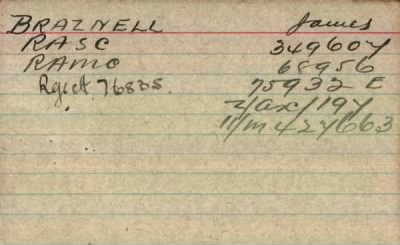 BRAZNELL James
RASC 349607
RAMC 68956
Reject 76835. 75932 E
2/ax/197
11/m 427663